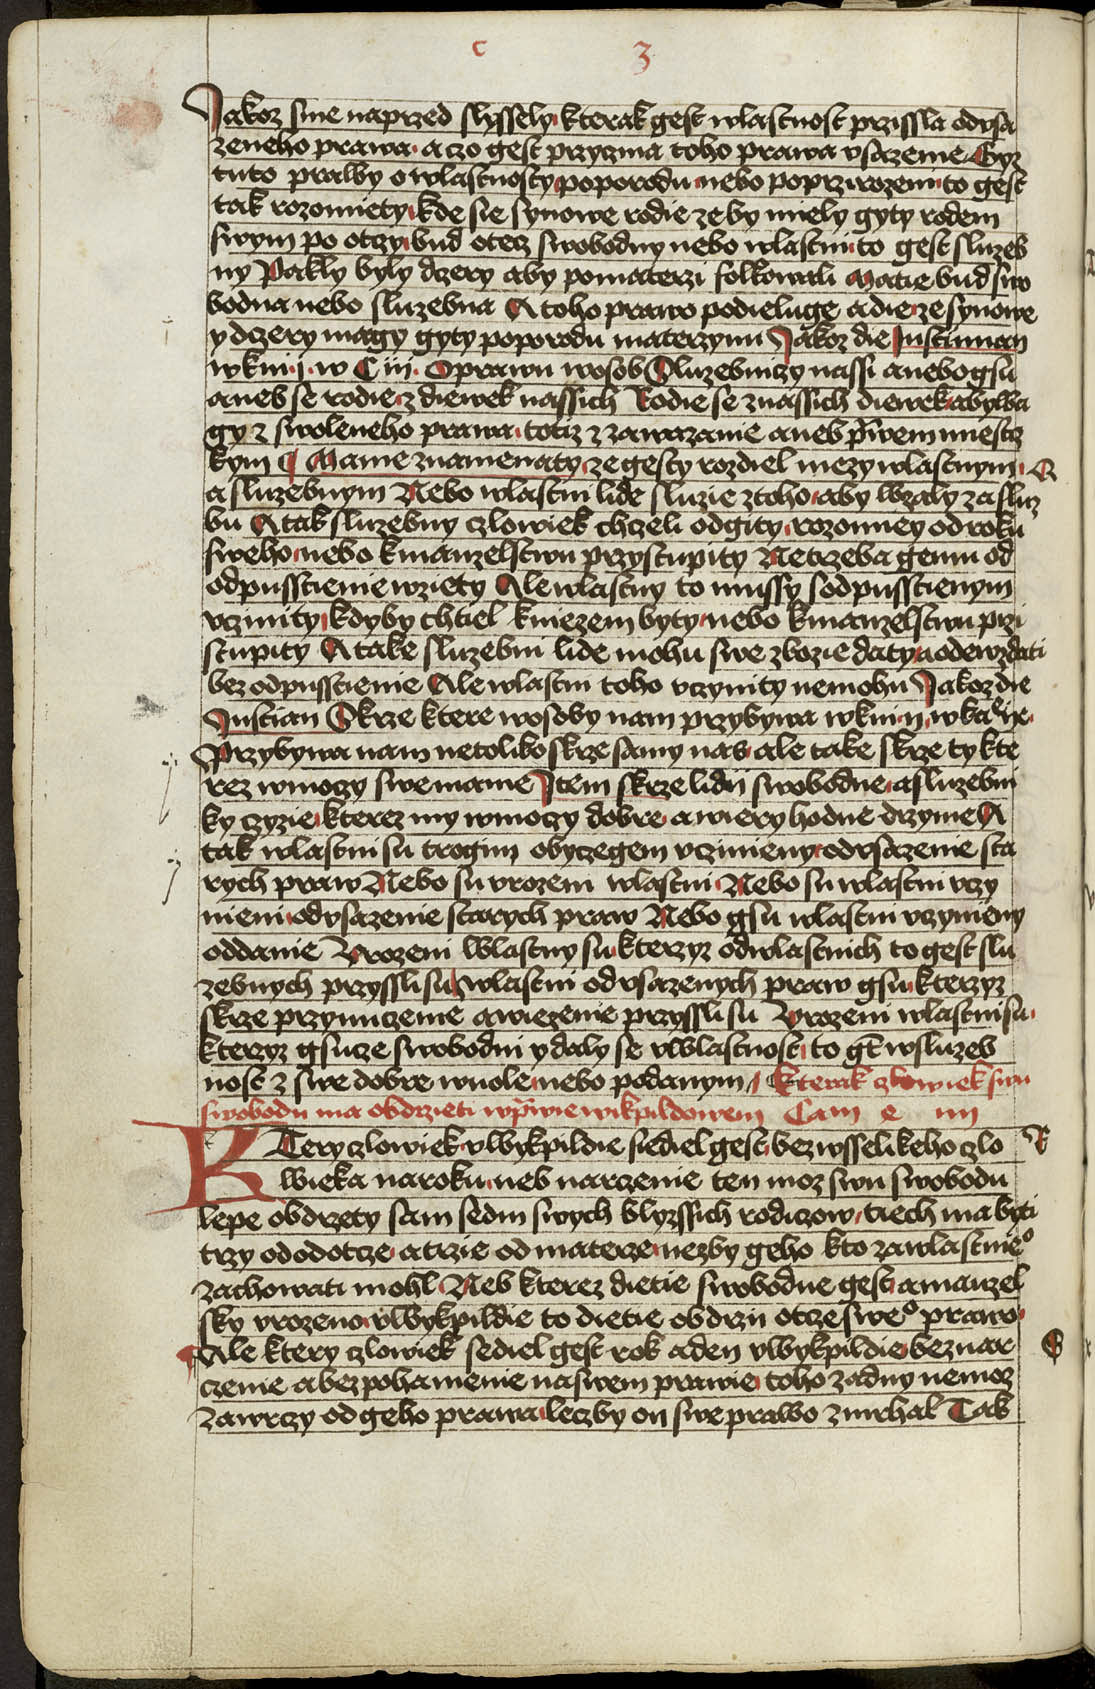 c 3
Jakoz sme naprzed slyssely kterak gest wlastnost przissla odvsa
zeneho prawa a czo gest przyczina toho prawa vsazenie Gyz
tuto prawby o wlastnosty poporodu nebo poprzirozeni to gest
tak rozomiety kde sie synowe rodie zeby miely gyty rodem
swym po otczy bud otecz swobodny nebo wlastni to gest sluzeb
ny Pakly byly dczery aby pomaterzi folkowali Matie bud swo
bodna nebo sluzebna A toho prawo podieluge a die ze synowe
y dczery magy gyty poporodu materzynu Jakoz die Justinian
w kni j w C iii O prawu wosob Sluzebniczy nassi anebo gsu
aneb se rodie z diewek nassich Rodie se znassich diewek abywa
gy z swoleneho prawa totiz z zawazanie aneb prwem miestz
kym Mame znamenaty ze gesty rozdiel mezy wlastnym R
a sluzebnym Nebo wlastni lide sluzie ztoho aby wzaly za sluz
bu A tak sluzebny czlowiek chczeli odgity rozomiey od roku
sweho nebo kmanzelstwu przystupity Netrzeba gemu od
odpusstienie wziety Ale wlastny to mussy sodpusstienym
vczinity kdyby chtiel kniezem byty nebo kmanzelstwu przi
stupity A take sluzebni lide mohu swe zbozie daty a odewzdati
bez odpusstienie Ale wlastni toho vczynity nemohu Jakoz die
Justian Skrze ktere wosoby nam przybywa w kni ii w ka ix
Przybywa nam netoliko skrze samy nas ale take skrze ty kte
rez wmoczy swe mame Item skrze lidi swobodne a sluzebni
ky czyzie kterez my wmoczy dobre a wiery hodne drzyme A
tak wlastni su trogim obyczegem vczinieny odvsazenie sta
rych praw Nebo su vrozeni wlastni Nebo su wlastni vczy
nieni odvsazenie starych praw Nebo gsu wlastni vczynieny
oddanie Vrozeni Wlastny su kterzyz odwlastnich to gest slu
zebnych przyssli su wlastni odvsazenych praw gsu kterzyz
skrze przynuczenie a wiezenie przyssli su Vrozeni wlastni su
kterzyz gsucze swobodni vdaly se vwlastnost to gt wsluzeb
nost z swe dobre wuole nebo podanym Kterak czlowiek swu
swobodu ma obdrzeti wprwie wikpildowem Cam e iiii
KTery czlowiek vwykpildie siediel gest bez wsselikeho czlo R
wieka naroku neb narczenie ten moz swu swobodu
lepe obdrzety sam sedm swych blyzssich rodiczow tiech ma byti
trzy ododotcze a trzie od materze nezby geho kto zawlastnieo
zachowati mohl Neb kterez dietie swobodne gest a manzel
sky vrozeno vwykpildie to dietie obdrzi otcze sweo prawo
Ale ktery czlowiek sediel gest rok a den vwykpildie beznar S
czenie abez pohanienie naswem prawie toho zadny nemoz
zawrczy od geho prawa leczby on swe prawo zmrhal Tak